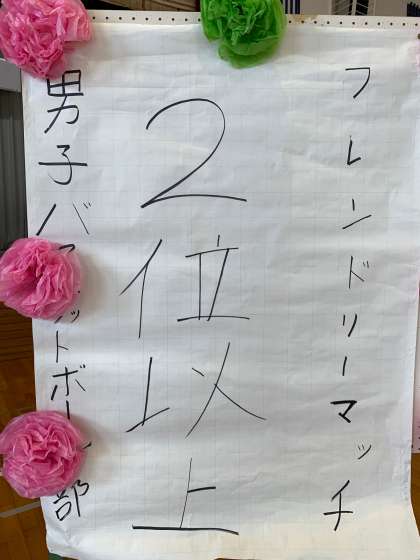 フレンドリーマッチ
2位以上
男子バ ットボー 部